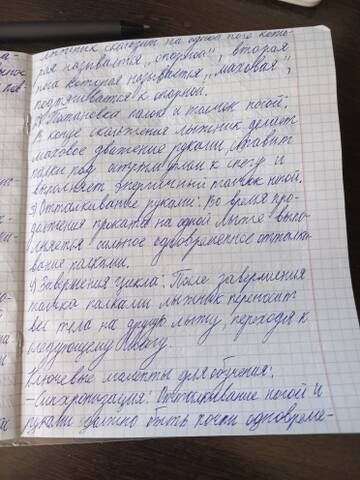 лыжник скользит на одной ноге кото-
рая называется „опорной", вторая
нога которая называется „маховая",
подтягивается к опорной.
2) Постановка палок и толчок ногой:
В конце скольжения лыжник делает
маховое движение руками, ставит
палки под острым углом к снегу и
выполняет энергичный толчок ногой.
3) Отталкивание руками: Во время про-
должения проката на одной лыже выпо-
лняется сильное одновременное отталки-
вание палками.
4) Завершения цикла: После завершения
толчка палками лыжник переносит
вес тела на другую лыжу, переходя к
следующему шагу.
Ключевые моменты для обучения:
- Синхронизация: Отталкивание ногой и
руками должно быть почти одновреме-